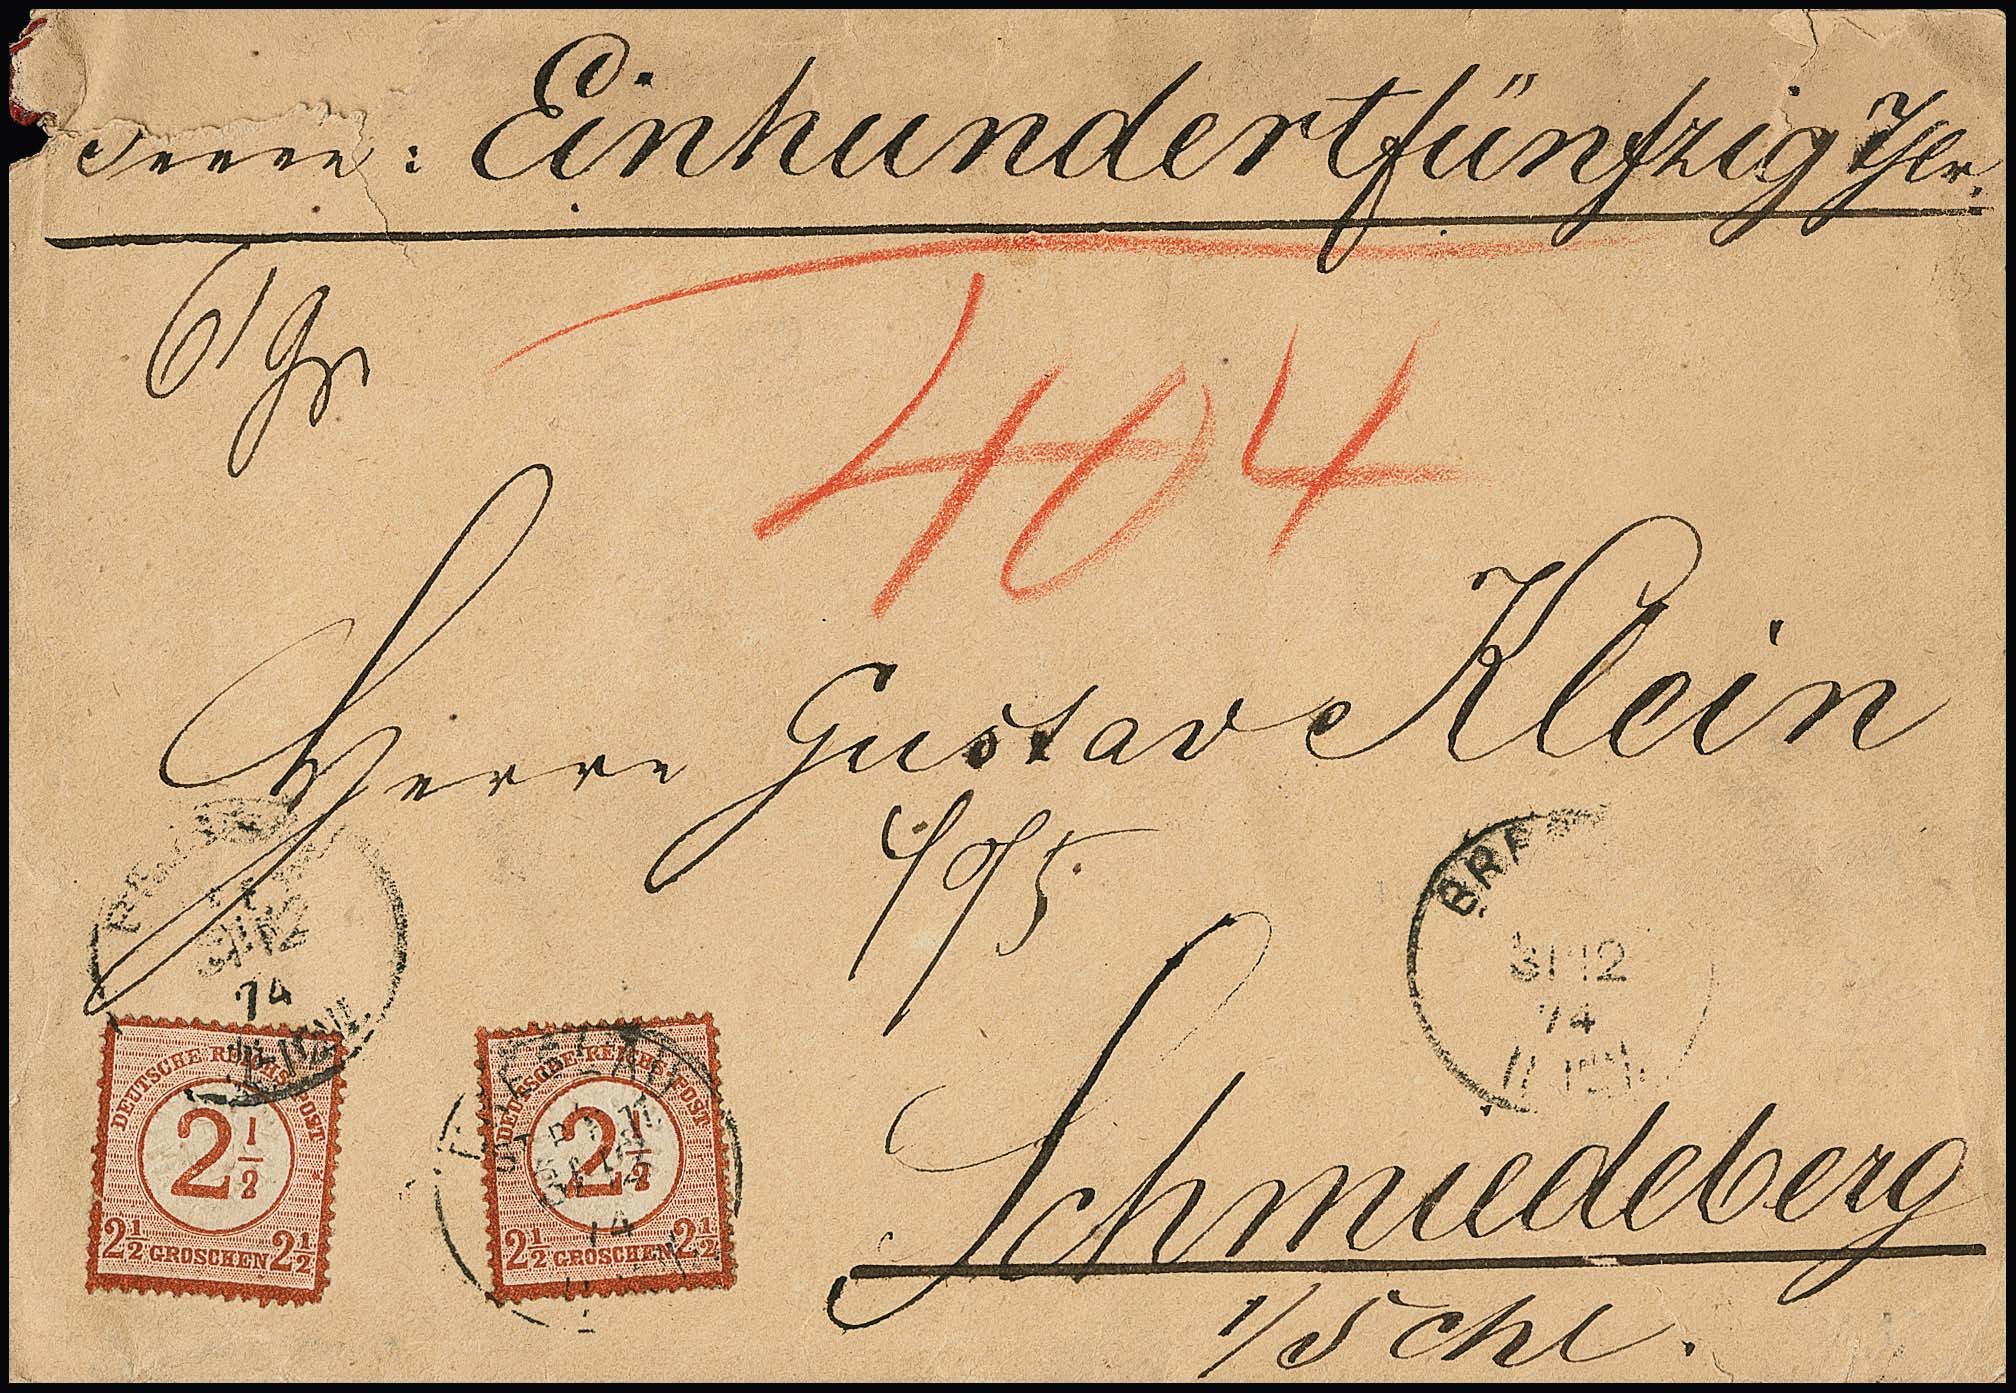 Einhundertfünfzig Thlr.
61 gr
404
Herrn Gustav Klein
Schmiedeberg
i/Schl.
31 12
74
BRE
31 12
74
DEUTSCHE REICHS-POST
2 1/2
2 1/2 GROSCHEN 2 1/2
DEUTSCHE REICHS-POST
2 1/2
2 1/2 GROSCHEN 2 1/2
74